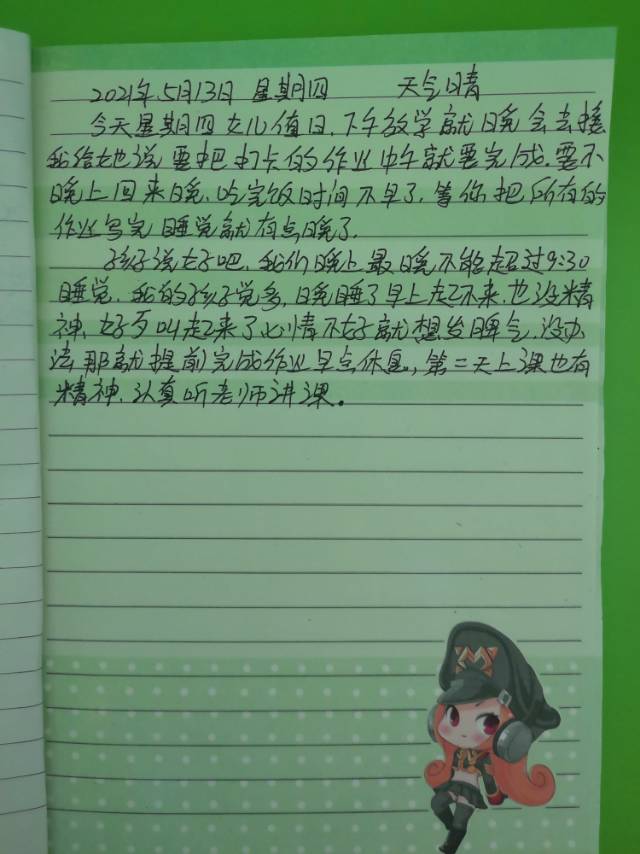 2021年5月13日 星期四 天气晴
今天星期四女儿值日,下午放学就晚会去接
我给她说要把打卡的作业中午就要完成,要不
晚上回来晚,吃完饭时间不早了,等你把所有的
作业写完睡觉就有点晚了.
孩子说好吧,我们晚上最晚不能超过9:30
睡觉,我的孩子觉多,晚睡了早上起不来,也没精
神,好歹叫起来了心情不好就想发脾气,没办
法那就提前完成作业早点休息,第二天上课也有
精神,认真听老师讲课。